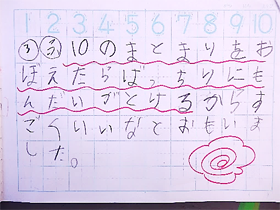 1 2 3 4 5 6 7 8 9 10
ふ 10のまとまりをお
ぼえたらばっちりにも
んだいがとけるからす
ごくいいなとおもいま
した。